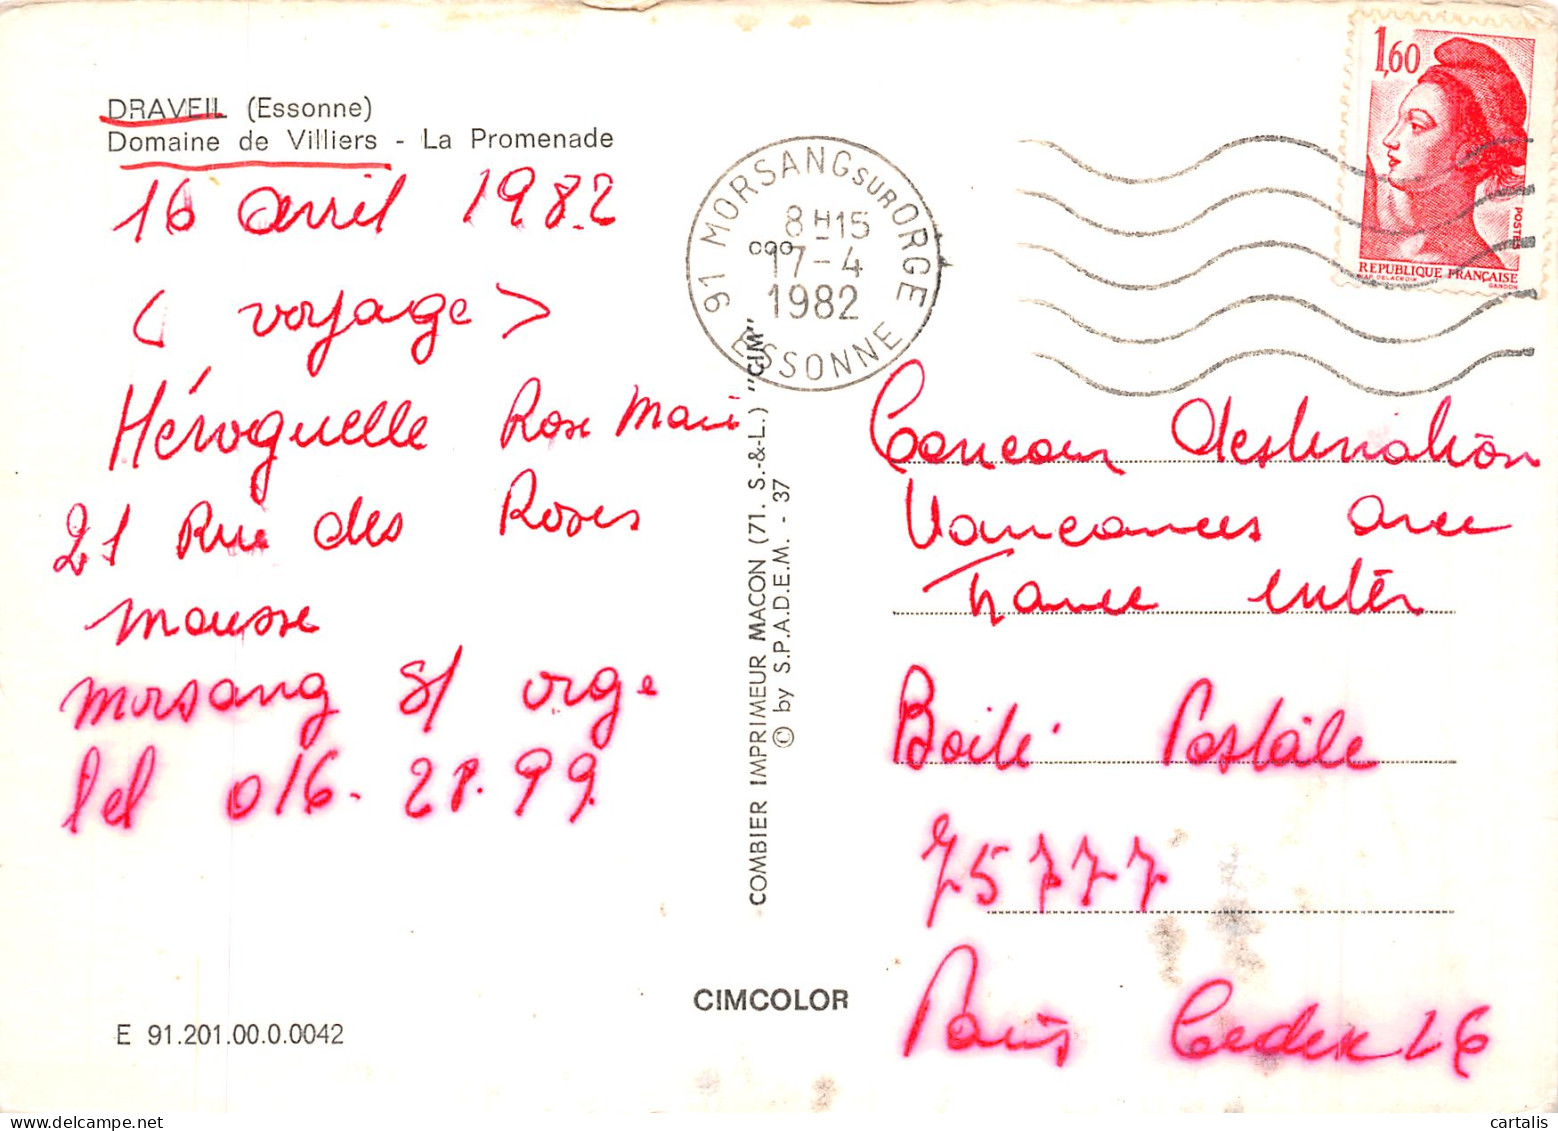 DRAVEIL (Essonne)
Domaine de Villiers - La Promenade
16 avril 1982
< voyage >
Héroguelle Rose Marie
21 Rue des Roses
mousse
morsang S/ orge
tel 016. 28. 99
E 91.201.00.0.0042
COMBIER IMPRIMEUR MACON (71. S.-&-L.) "CIM"
© by S.P.A.D.E.M. - 37
CIMCOLOR
91 MORSANG SUR ORGE
8H15
17-4
1982
ESSONNE
1,60
POSTES
REPUBLIQUE FRANÇAISE
D'AP. DELACROIX GANDON
Concour destination
Vancances avec
France inter
Boite Postâle
75777
Paris Cedex 16
cartalis